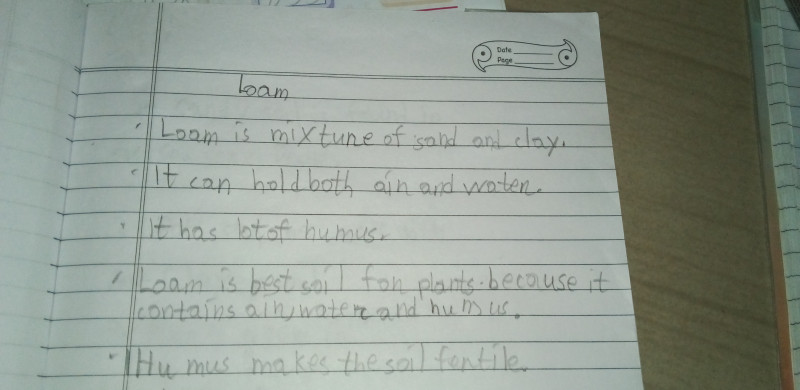 Date
Page
Loam
Loam is mixture of sand and clay.
It can hold both air and water.
It has lot of humus.
Loam is best soil for plants. because it
contains air, water and humus.
Humus makes the soil fertile.